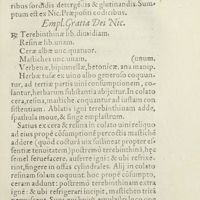 ribus sordidis detergēdis & glutinandis. Sum-
ptum est ex Nic. Præpositi codicibus.
Empl. Gratia Dei Nic.
℞ Terebinthinæ lib. dimidiam.
Resinæ lib. unam.
Ceræ albæ unc. quatuor.
Mastiches unc. unam. (unum.
Verbenæ, bipinnellæ, betonicæ, ana manip.
Herbæ tusæ ex uino albo generoso coquan-
tur, ad tertias, postquàm refrixerint, conteri-
to fricentur, herbarum subsidētia abijcitur. In colato
cera, resina, mastiche, coquantur ad iustam con-
sistentiam. Ablatis igni terebinthinam adde,
spathula moue, & finge emplastrum.
Satius ex cera & resina in colato uini reliquo
ad eius propè cōsumptionē percoctis mastichē
addere (quod coctura uix sustineat propter es-
sentiæ tenuitatem) postremò terebinthinā, hęc
fenè semel seruefacere, auferre igni: & ubi refrixe-
rint, fingere in offas cylindrales. Alij in colato
resinam solam coquunt hoc propè cōsumpto,
ceram addunt: postremò terebinthinam extra
ignē: & ubi refrigerari incipit, mastichen tritā